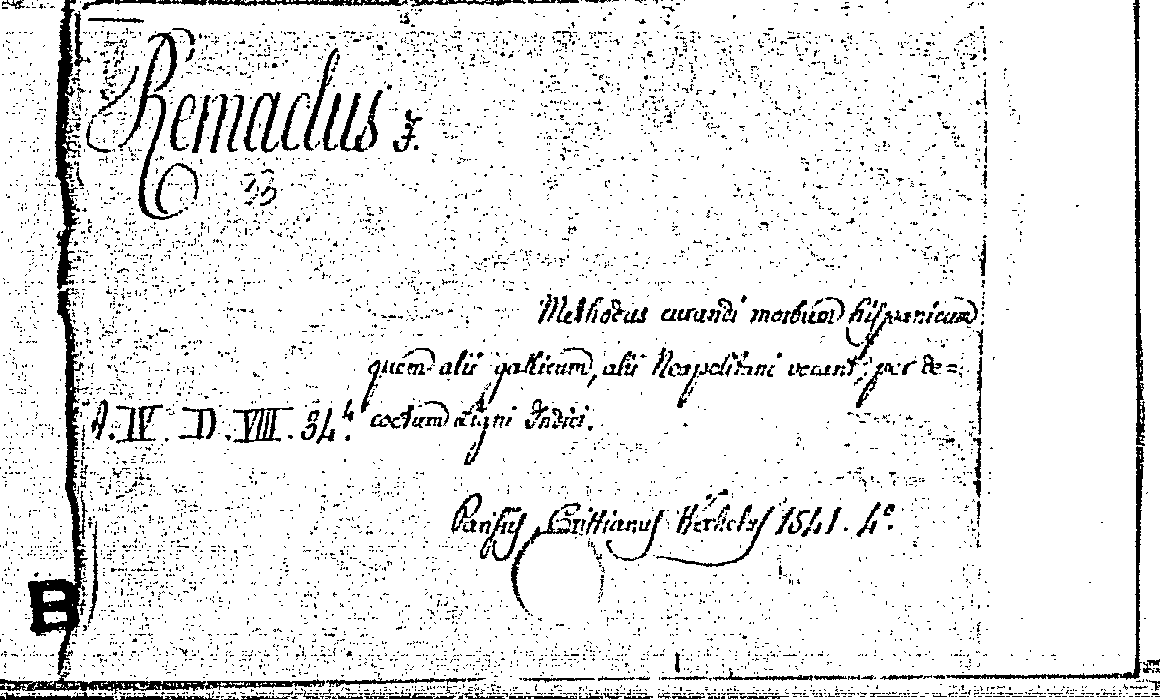 Remaclus F.
33
Methodus curandi morbum hispanicum
quem alii gallicum, alii Neapolitani vocant; per de=
coctum ligni Indici.
A. IV. D. VIII. 34.
Parisijs, Cristianus 1541. 4°.
B